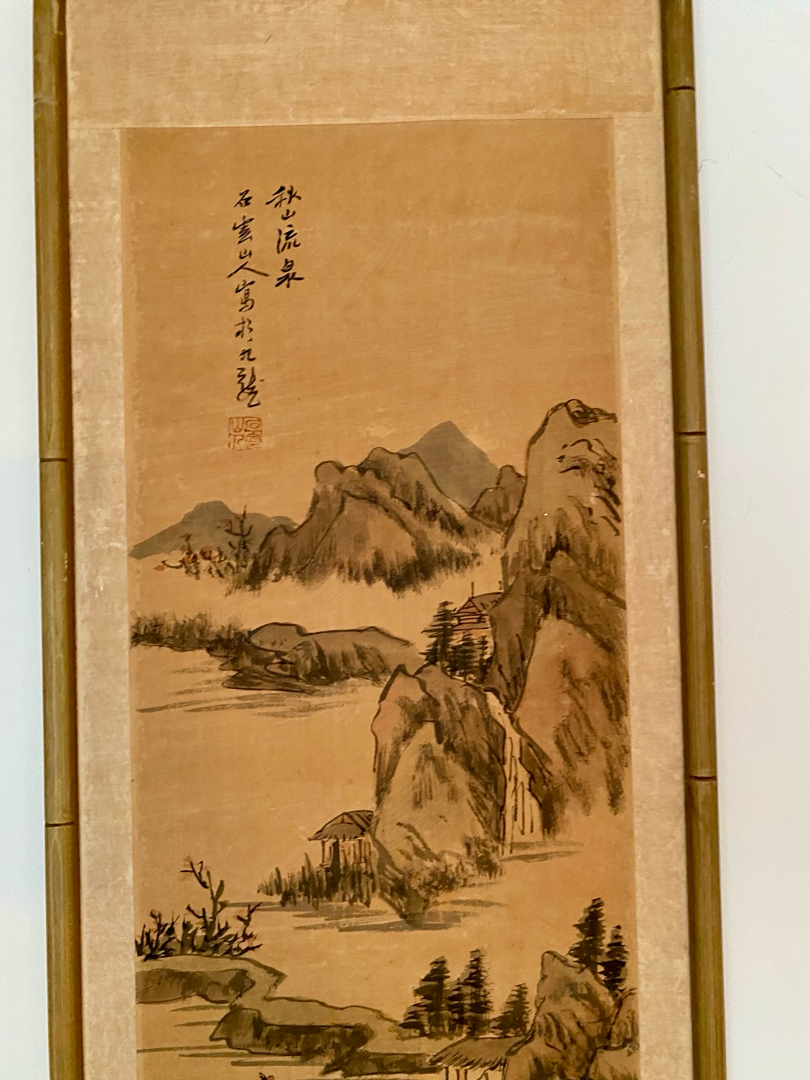 秋山流泉
石雲山人寫於九龍